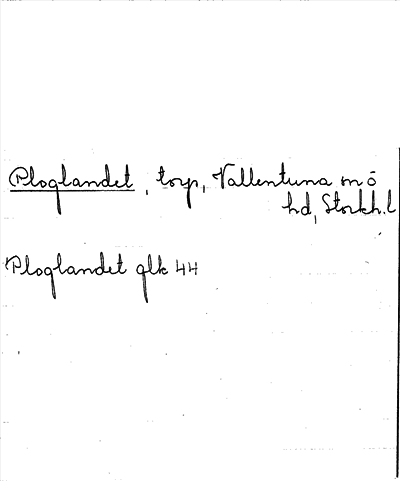 Ploglandet, torp, Vallentuna sn ö
hd, Stockh.l
Ploglandet glk 44